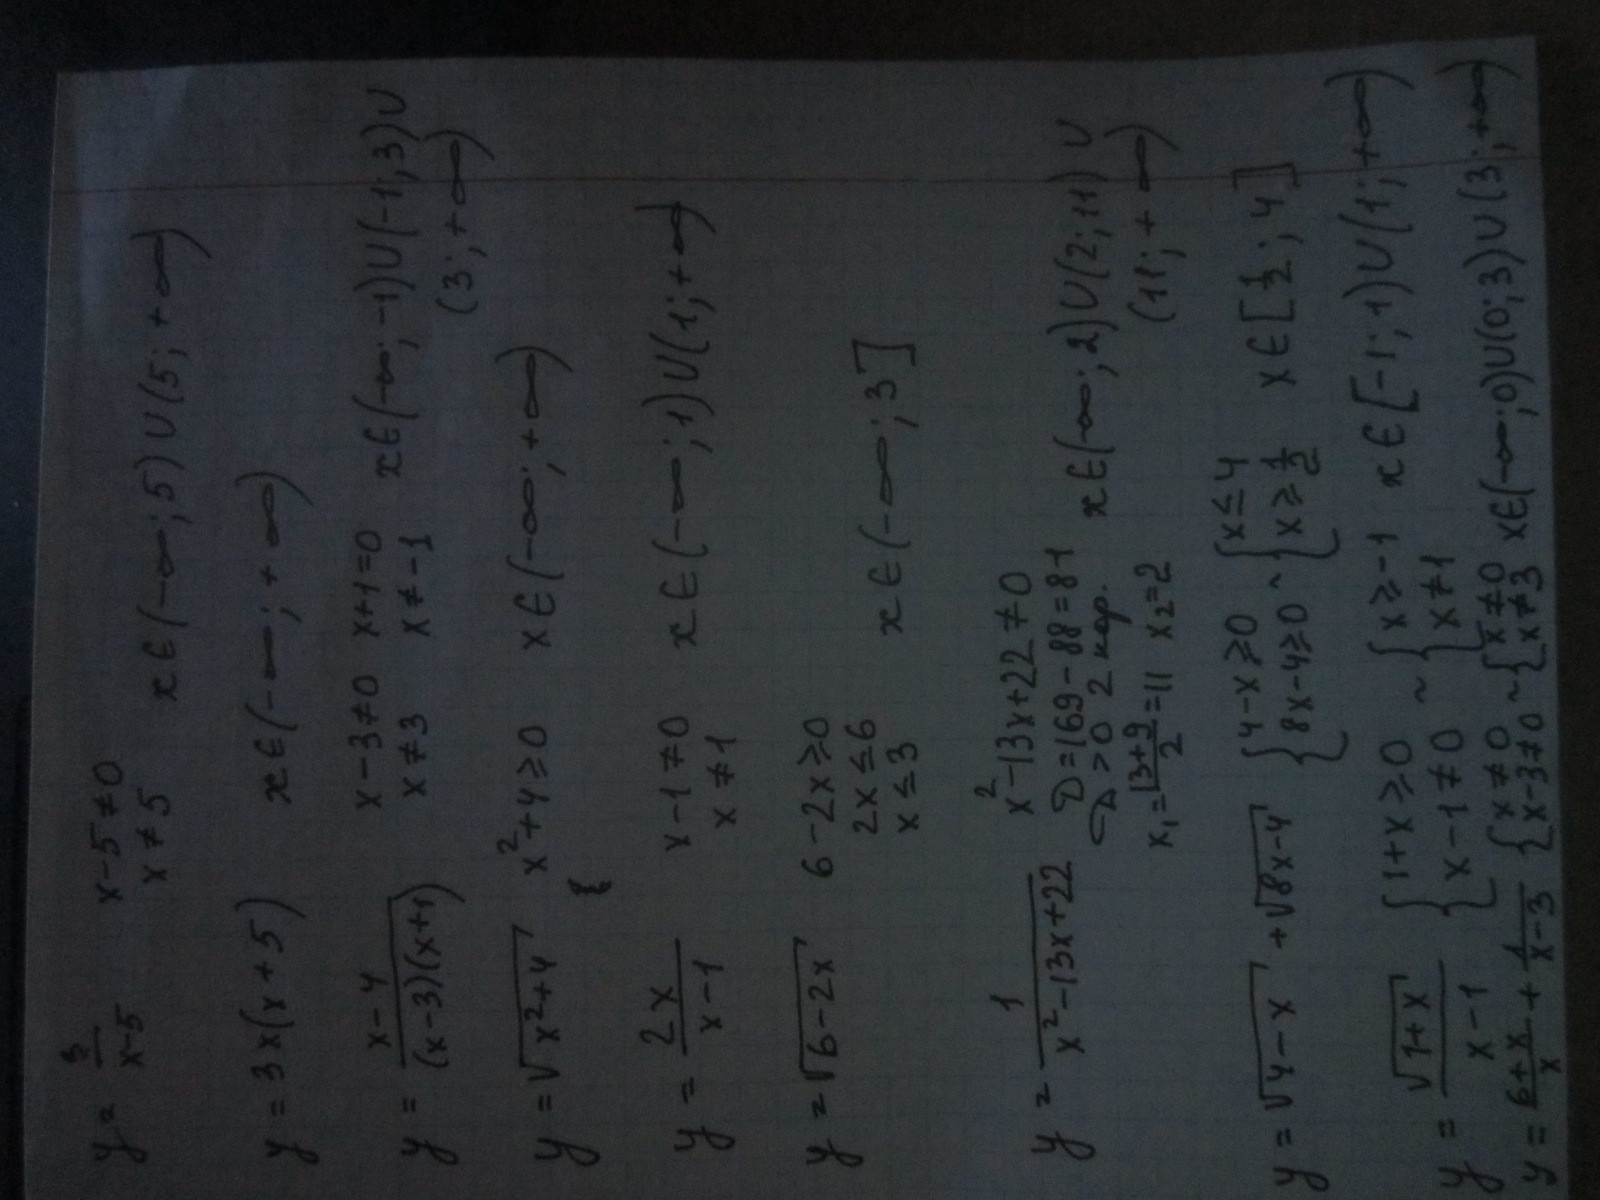 y = 3/(x-5)   x-5≠0
x≠5   x∈(-∞;5)∪(5;+∞)
y = 3x(x+5)   x∈(-∞;+∞)
y = (x-4)/((x-3)(x+1))   x-3≠0   x+1=0
x≠3   x≠-1   x∈(-∞;-1)∪(-1;3)∪
(3;+∞)
y = √(x²+4)   x²+4≥0   x∈(-∞;+∞)
y = 2x/(x-1)   x-1≠0   x∈(-∞;1)∪(1;+∞)
x≠1
y = √(6-2x)   6-2x≥0
2x≤6
x≤3   x∈(-∞;3]
y = 1/(x²-13x+22)   x²-13x+22≠0
D=169-88=81
D>0 2 кор.   x∈(-∞;2)∪(2;11)∪
x₁=(13+9)/2=11   x₂=2   (11;+∞)
y = √(4-x) + √(8x-4)   {4-x≥0   {x≤4
{8x-4≥0 ~ {x≥1/2   x∈[1/2;4]
y = √(1+x)/(x-1)   {1+x≥0   {x≥-1   x∈[-1;1)∪(1;+∞)
{x-1≠0 ~ {x≠1
y = (6+x)/x + 1/(x-3)   {x≠0   {x≠0
{x-3≠0 ~ {x≠3   x∈(-∞;0)∪(0;3)∪(3;+∞)